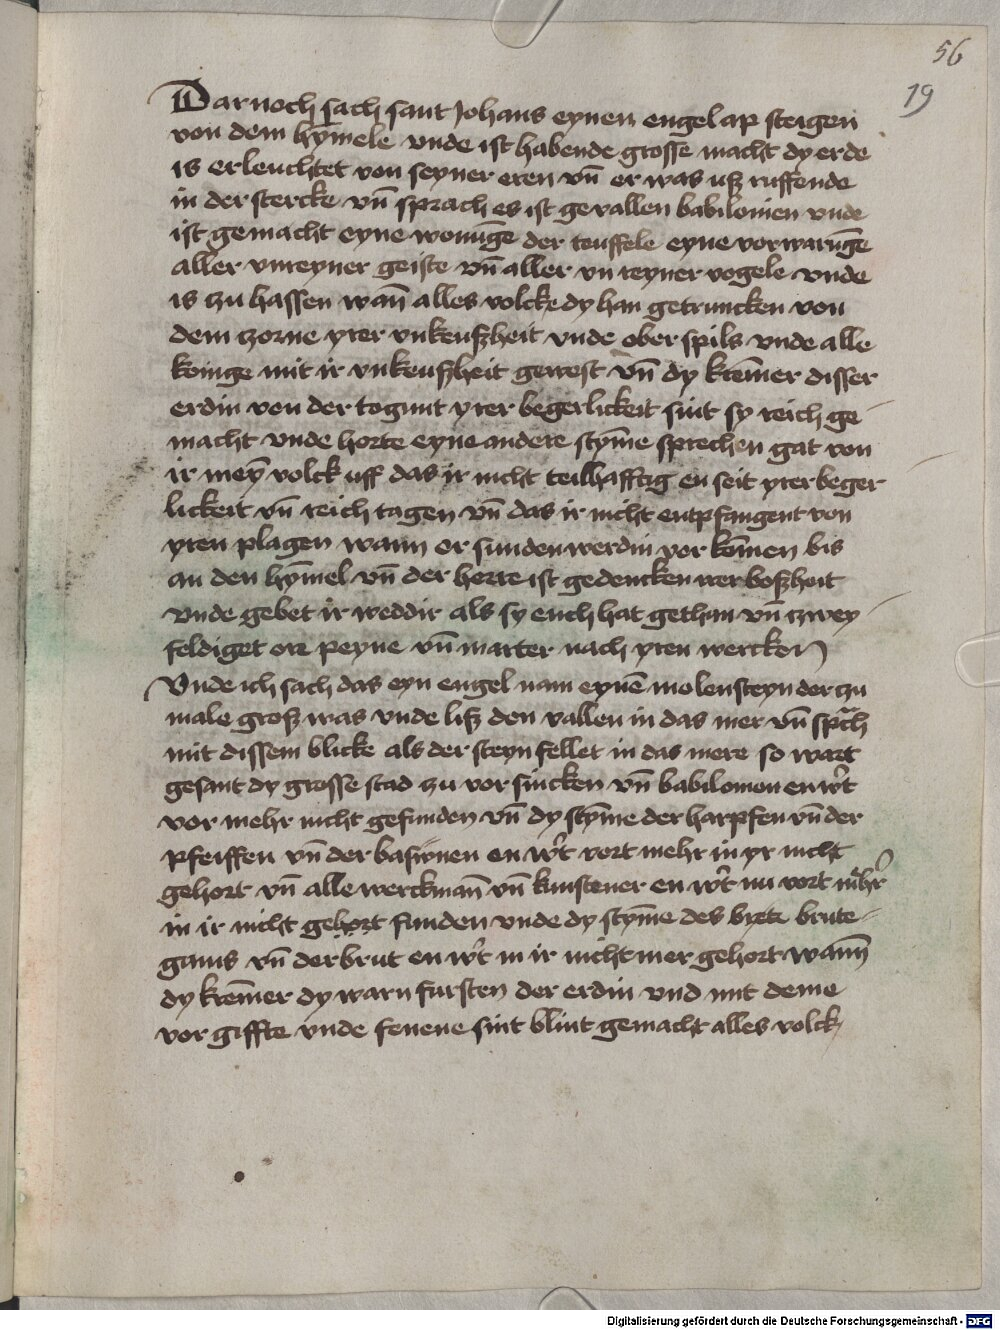 56
19
Darnoch sach sant Johans eynen engel ap steigen
von dem hȳmele vnde ist habende grosse macht dy erde
is erleuchtet von seyner eren vn̄ er was usz ruffende
in der stercke vn̄ sprach es ist gevallen babilonien vnde
ist gemacht eyne wonūge der teuffele eyne vorwarūge
aller vnreyner geiste vn̄ aller vn reyner vogele vnde
is zu hassen wan̄ alles volcke dy han getruncken von
dem zorne yrer vnkeuszheit vnde ober spils vnde alle
koinge mit ir vnkeuszheit gewest vn̄ dy krēmer disser
erdin von der togunt yrer begerlickeit sint sy reich ge-
macht vnde horte eyne andere stȳme sprechen gat von
ir meȳ volck uff das ir nicht teilhafftig en seit yrer beger
lickeit vn̄ reich tagen vn̄ das ir nicht entpfangent von
yren plagen wann er sunden werdin vor kōmen bis
an den hȳmel vn̄ der herre ist gedencken irer boszheit
vnde gebet ir weddir als sy euch hat gethan vn̄ zwey-
feldiget ere peyne vn̄ marter nach yren wercken
Vnde ich sach das eyn engel nam eynē molensteyn der zu
male grosz was vnde lisz den vallen in das mer vn̄ sprach
mit dissem blicke als der steyn fellet in das mere so wart
gesant dy grosse stad zu vor sincken vn̄ babilonien en wirt
vor mehr nicht gefunden vn̄ dy stȳme der harpfen vn̄ der
pfeiffen vn̄ der basunen en wirt vort mehr in yr nicht
gehort vn̄ alle werckman̄ vn̄ kunstener en wirt nu vort mehr
in ir nicht gehort funden vnde dy stȳme des brute-
gams vn̄ der brut en wirt in ir nicht mer gehort wann̄
dy krēmer dy warn fursten der erdin vnd mit deme
vor giffte vnde fenene sint blint gemacht alles volck
Digitalisierung gefördert durch die Deutsche Forschungsgemeinschaft - DFG